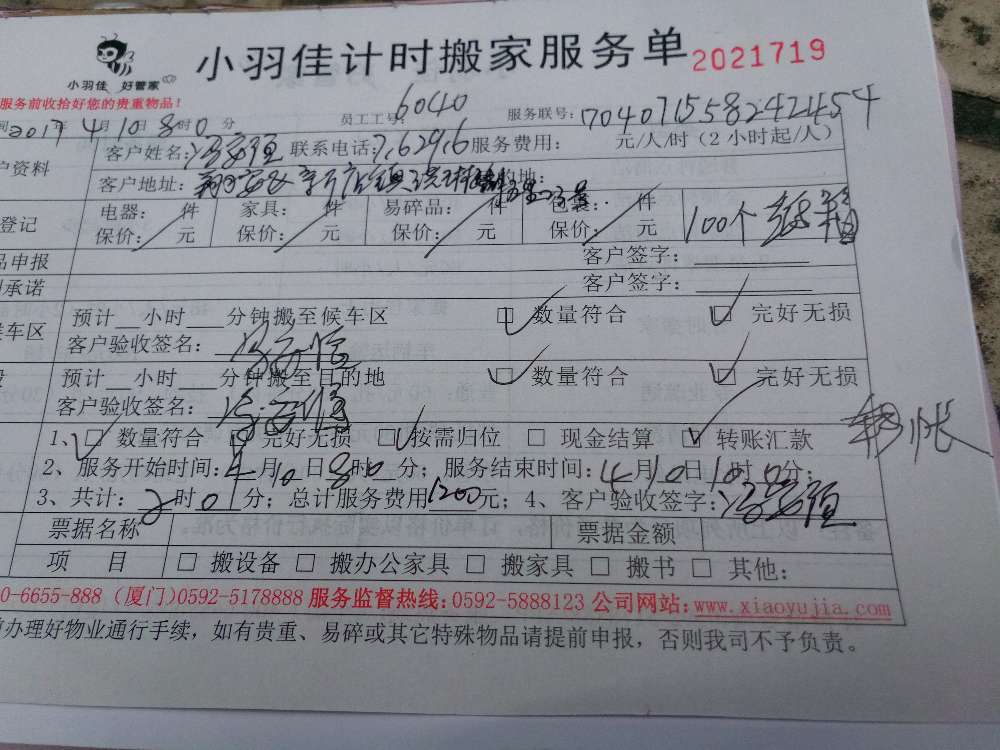 小羽佳计时搬家服务单 2021719
小羽佳 好管家
服务前收拾好您的贵重物品!
2017年4月10日8时0分 员工工号:6040 服务联号:704071558242454
户资料 客户姓名: 联系电话: 服务费用: 元/人/时(2小时起/人)
客户地址: 的地:
登记 电器: 件 家具: 件 易碎品: 件 包装: 件 100个
保价: 元 保价: 元 保价: 元 保价: 元
品申报 客户签字:
承诺 客户签字:
候车区 预计__小时___分钟搬至候车区 □ 数量符合 □ 完好无损
客户验收签名:
预计__小时___分钟搬至目的地 □ 数量符合 □ 完好无损
客户验收签名:
1、□ 数量符合 □ 完好无损 □ 按需归位 □ 现金结算 □ 转账汇款 转帐
2、服务开始时间:4月10日8时0分;服务结束时间:4月10日10时0分;
3、共计:2时0分;总计服务费用1200元;4、客户验收签字:
票据名称 票据金额
项 目 □ 搬设备 □ 搬办公家具 □ 搬家具 □ 搬书 □ 其他:
0-6655-888 (厦门)0592-5178888 服务监督热线:0592-5888123 公司网站:www.xiaoyujia.com
办理好物业通行手续,如有贵重、易碎或其它特殊物品请提前申报,否则我司不予负责。